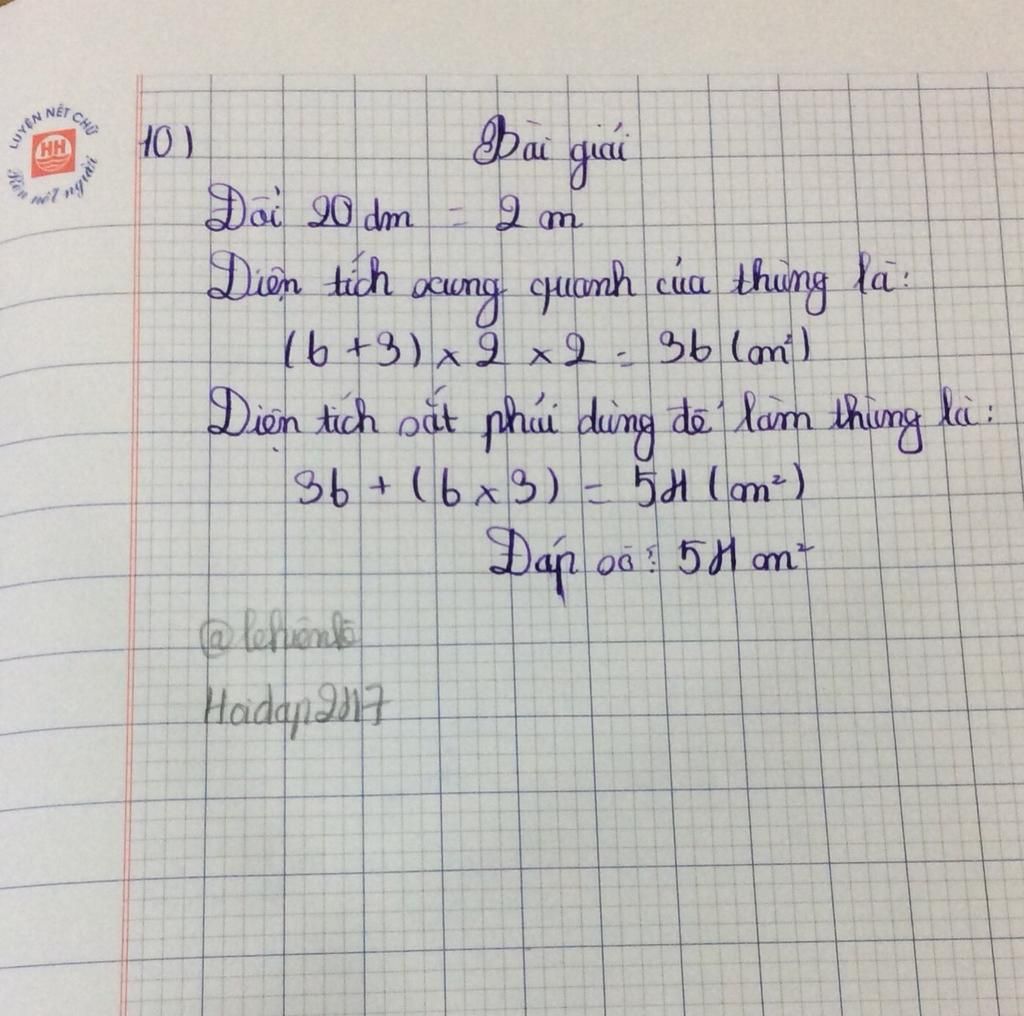 LUYỆN NÉT CHỮ
HH
Rèn nết người
10) Bài giải
Đổi 20 dm = 2 m
Diện tích xung quanh của thùng là:
(6 + 3) x 2 x 2 = 36 (m²)
Diện tích sắt phải dùng để làm thùng là:
36 + (6 x 3) = 54 (m²)
Đáp số: 54 m²
Hoidap247